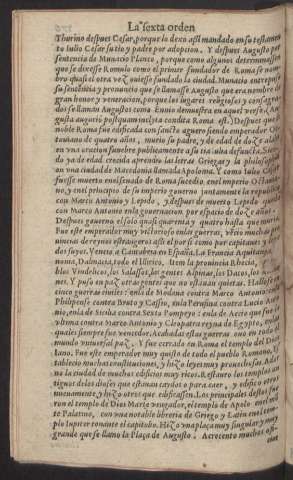 La sexta orden
Thurino despues Cesar, porque lo dexo assi mandado en su testamen
to Iulio Cesar su tio y padre por adopcion. Y despues Augusto por
sentencia de Munacio Planco, porque como algunos determinassen
que se dixesse Romulo como el primer fundador de Roma
bro quasi el otra vez ouiesse fundado la ciudad. Munacio
su sentencia y pronuncio que se llamasse Augusto que era nombre de
gran honor y veneracion, porque los lugares religiosos y consagra
dos se llaman Augustos como Ennio demuestra en aquel verso (Au
gusta augurio postquam inclyta condita Roma est.) Despues que
noble Roma fue edificada con sancto aguero siendo emperador O
tauiano de quatro años, murio su padre, y de edad de doze años
en vna oracion funebre publicamente a su tia Iulia defuncta. Sien
do ya de edad crecida aprendio las letras Griegas y la philosophia
en vna ciudad de Macedonia llamada Apolonia. Y como Iulio Cesar
fuesse muerto en el senado de Roma sucedio en el imperio Octauia
no, y en el principio de su imperio gouerno juntamente la republica
con Marco Antonio y Lepido, y despues de muerto Lepido
con Marco Antonio en la gouernacion por espacio de doze años.
Despues gouerno el solo quasi quarenta y quatro hasta que murio.
Fue este emperador muy victorioso en las guerras, vécio muchas pro
uincias de reynos estrangeros assi el por si como por capitanes y
dos suyos. Vencio a Cantabria en España, La Francia Aquitania,
nonia, Dalmacia, todo el Illirico, Item la prouincia Rhecia,
blos Vindelicos, los Salassos, las gentes Alpinas, los Dacos, los
nes. Y puso en paz otras gentes que no estauan quietas. Hallose en
cinco guerras ciuiles: en la de Modena contra Marco Antonio
Philipense contra Bruto y Cassio, en la Perusina contra Lucio Anto
nio, en la de Sicilia contra Sexto Pompeyo: en la de Accio que fue la
vltima contra Marco Antonio y Cleopatra reyna de Egypto, de los
quales siempre fue vencedor. Acabadas estas guerras ouo en todo el
mundo vniuersal paz. Y fue cerrado en Roma el templo del Dios
Iano. Fue este emperador muy quisto de todo el pueblo Romano,
tablecio muchas constituciones, y hizo leyes muy prouechosas. Ador
no la ciudad de muchos edificios muy ricos. Restauro los templos an
tiguos delos dioses que estauan caydos o para caer, y edifico otros
nueuamente, y hizo otros que edificassen. Los principales destos fue
ron el templo de Dios Marte vengador, el templo de Apolo en el mõ
te Palatino, con vna notable libreria de Griego y Latin en el tem
plo Iupiter tonante el capitulio. Hizo vna plaça muy singular y muy
grande que se llamo la Plaça de Augusto. Acrecento muchas